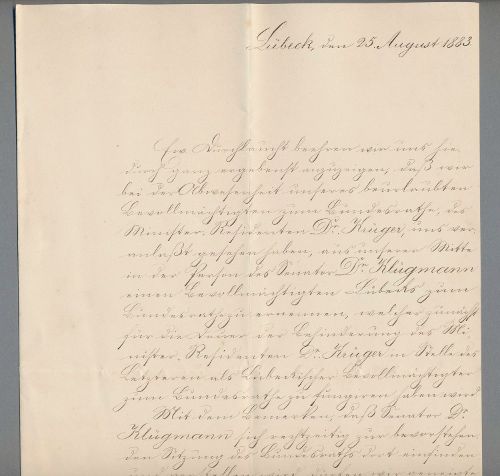 Lübeck, den 25. August 1883.
Ew. Durchlaucht beehren wir uns hie-
durch ganz ergebenst anzuzeigen, daß wir
bei der Abwesenheit unseres beurlaubten
Bevollmächtigten zum Bundesrathe, des
Minister-Residenten Dr. Krüger, uns ver-
anlaßt gesehen haben, aus unserer Mitte
in der Person des Senator Dr. Klügmann
einen Bevollmächtigten Lübecks zum
Bundesrathe zu ernennen, welcher zunächst
für die Dauer der Behinderung des Mi-
nister-Residenten Dr. Krüger in Stelle des
Letzteren als Lübeckischer Bevollmächtigter
zum Bundesrathe zu fungiren haben wird.
Mit dem Bemerken, daß Senator Dr.
Klügmann sich rechtzeitig zur bevorstehen-
den Sitzung des Bundesraths dort einfinden